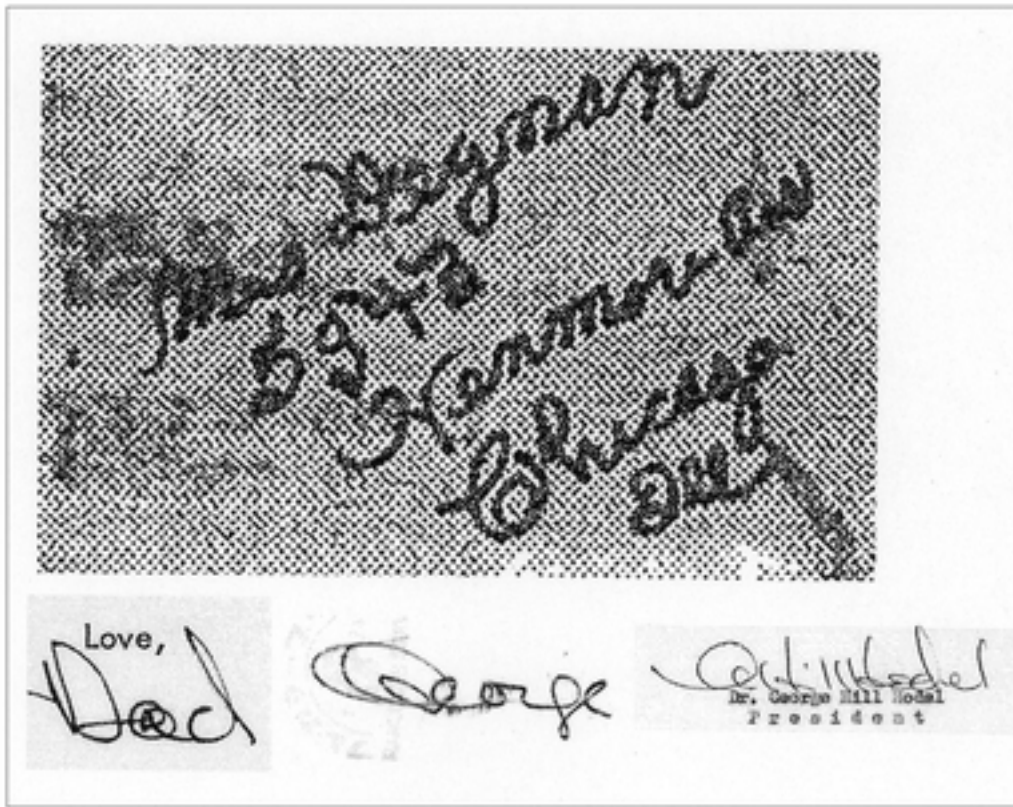 Mrs Degnan
5943
Kenmore Ave
Chicago
Ill
Love,
Dad
George
G. Hill Hodel
Dr. George Hill Hodel
President